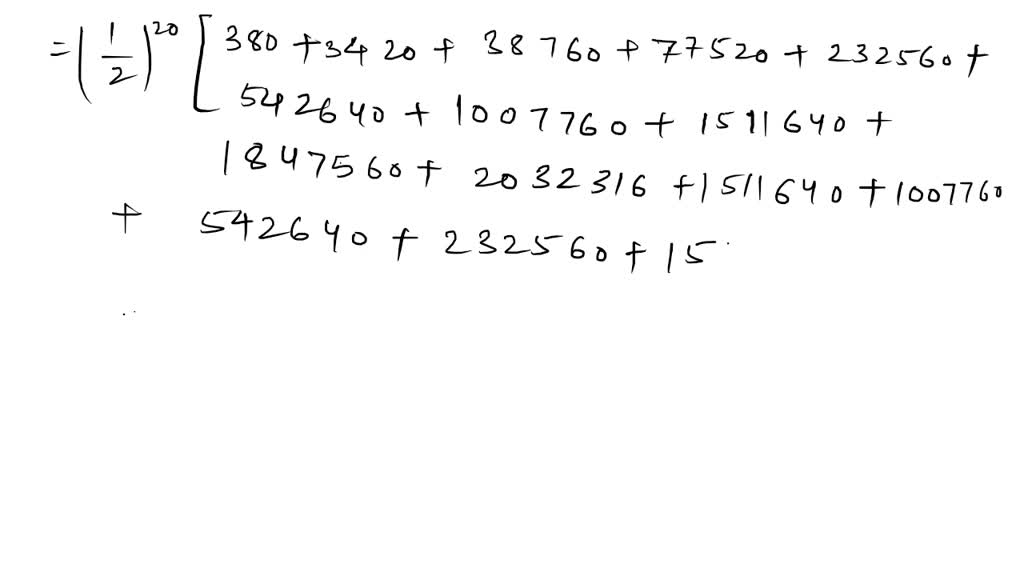 = (1/2)^20 [380 + 3420 + 38760 + 77520 + 232560 +
542640 + 1007760 + 1511640 +
1847560 + 2032316 + 1511640 + 1007760
+ 542640 + 232560 + 15